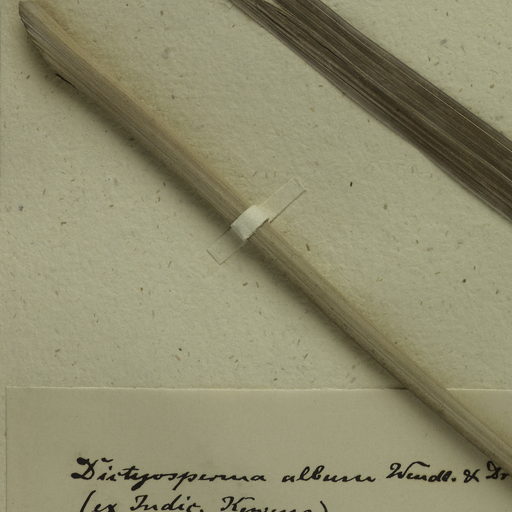 Dictyosperma album Wendl. & Dr
(ex Indic. Kewens)